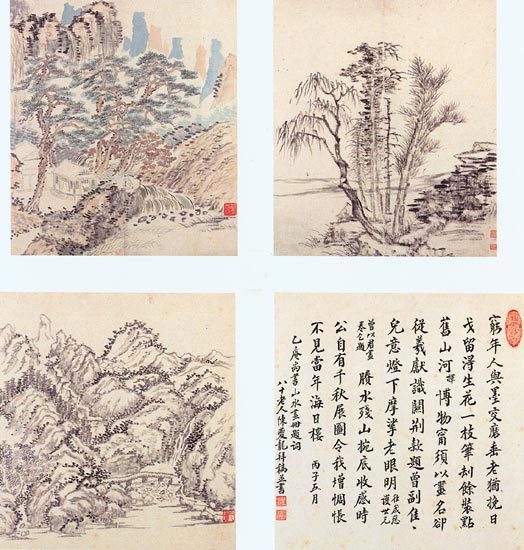 窮年人與墨交磨垂老猶挽日
戈留得生花一枝筆刦餘裝點
舊山河 博物甯須以畫名卻
從羲獻識關荆款題曾副佳
兒意燈下摩挲老眼明 往歲恩護世兄
曾以君畫卷乞題 賸水殘山捥底收感時
公自有千秋展圖令我增惆悵
不見當年海日樓 丙子五月
乙庵 山水畫冊題詞
八十老人陳夔龍拜稿並書